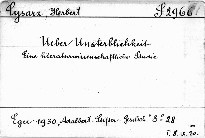 Cysarz, Herbert
S 2966
Ueber Unsterblichkeit
Eine literaturwissenschaftliche Studie
Eger 1930, Adalbert Stifter-Gesell. 8° S 28